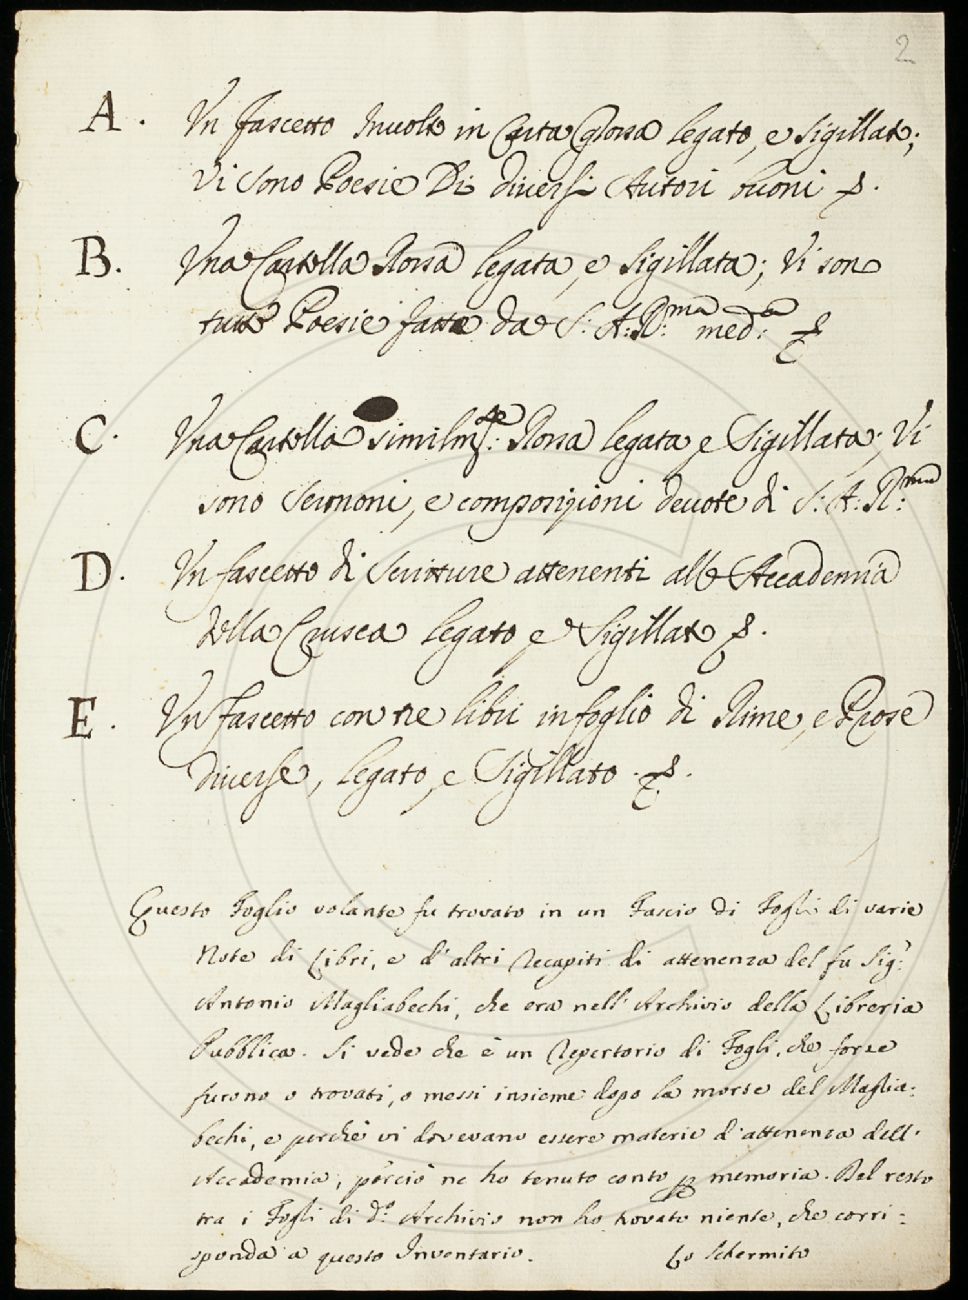 2
A. Un fascetto Inuolto in Carta Grossa legato, e Sigillato;
Vi Sono Poesie Di diversi Autori buoni
B. Una Cartella Rossa legata, e Sigillata; Vi sono
tutte Poesie fatte da S: A: R:ma med:a
C. Una Cartella similm:te Rossa legata e Sigillata; Vi
sono Sermoni, e composizioni deuote di S: A: R:ma
D. Un fascetto di Scritture attenenti all'Accademia
della Crusca legato e Sigillato
E. Un fascetto con tre libri in foglio di Rime, e Prose
diverse, legato, e Sigillato.
Questo Foglio volante fu trovato in un Fascio di Fogli di varie
Note di Libri, e d'altri Recapiti di attenenza del fu Sig.r
Antonio Magliabechi, che era nell'Archivio della Libreria
Pubblica. Si vede che è un Repertorio di Fogli, che forse
furono o trovati, o messi insieme dopo la morte del Maglia:
bechi, e perchè vi dovevano essere materie d'attenenza dell'
Accademia, perciò ne ho tenuto conto p memoria. Del resto
tra i Fogli di d.o Archivio non ho trovato niente, che corri:
sponda a questo Inventario. Lo Schermito